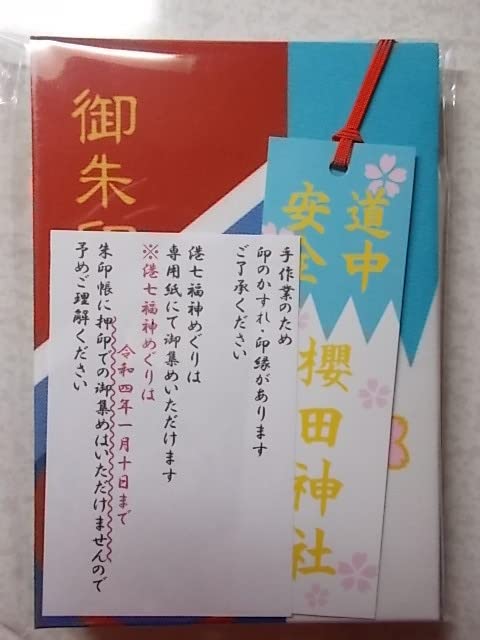 御朱印
道中
安全
櫻田神社
手作業のため
印のかすれ・印縁があります
ご了承ください
港七福神めぐりは
専用紙にて御集めいただけます
※港七福神めぐりは
令和四年一月十日まで
朱印帳に押印での御集めはいただけませんので
予めご理解ください